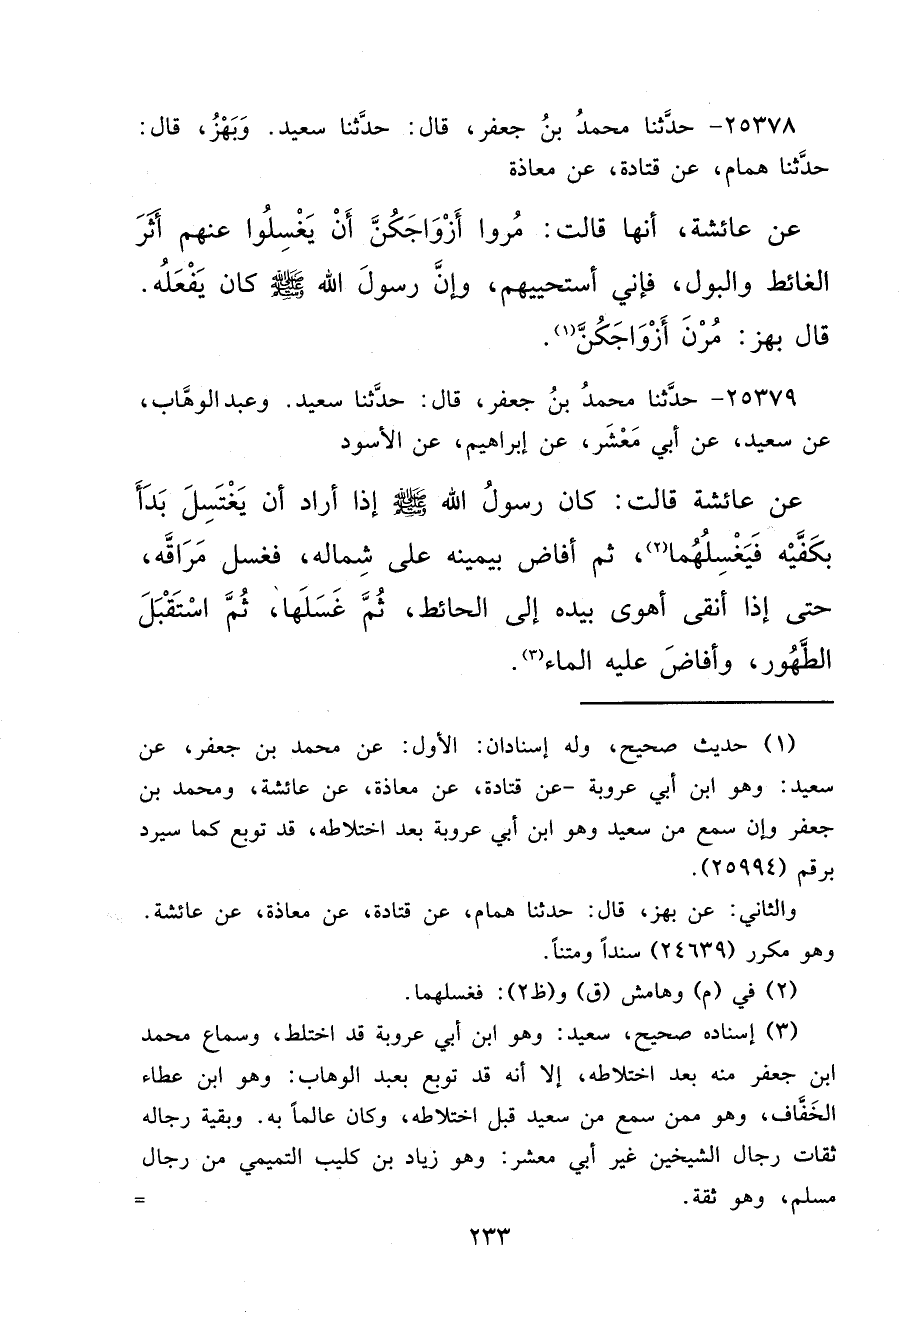 ٢٥٣٧٨- حدَّثنا محمدُ بنُ جعفر، قال: حدَّثنا سعيد. وَبَهْزُ، قال:
حدَّثنا همام، عن قتادة، عن معاذة
عن عائشة، أنها قالت: مُروا أَزْوَاجَكُنَّ أَنْ يَغْسِلُوا عنهم أَثَرَ
الغائط والبول، فإني أستحييهم، وإنَّ رسولَ الله ﷺ كان يَفْعَلُه.
قال بهز: مُرْنَ أَزْوَاجَكُنَّ(١).
٢٥٣٧٩- حدَّثنا محمدُ بنُ جعفر، قال: حدَّثنا سعيد. وعبد الوهَّاب،
عن سعيد، عن أبي مَعْشَر، عن إبراهيم، عن الأسود
عن عائشة قالت: كان رسولُ الله ﷺ إذا أراد أن يَغْتَسِلَ بَدَأَ
بكَفَّيْه فَيَغْسِلُهُما(٢)، ثم أفاض بيمينه على شِماله، فغسل مَرَاقَّه،
حتى إذا أنقى أهوى بيده إلى الحائط، ثُمَّ غَسَلَها، ثُمَّ اسْتَقْبَلَ
الطَّهُور، وأفاضَ عليه الماء(٣).
(١) حديث صحيح، وله إسنادان: الأول: عن محمد بن جعفر، عن
سعيد: وهو ابن أبي عروبة -عن قتادة، عن معاذة، عن عائشة، ومحمد بن
جعفر وإن سمع من سعيد وهو ابن أبي عروبة بعد اختلاطه، قد توبع كما سيرد
برقم (٢٥٩٩٤).
والثاني: عن بهز، قال: حدثنا همام، عن قتادة، عن معاذة، عن عائشة.
وهو مكرر (٢٤٦٣٩) سنداً ومتناً.
(٢) في (م) وهامش (ق) و(ظ٢): فغسلهما.
(٣) إسناده صحيح، سعيد: وهو ابن أبي عروبة قد اختلط، وسماع محمد
ابن جعفر منه بعد اختلاطه، إلا أنه قد توبع بعبد الوهاب: وهو ابن عطاء
الخَفَّاف، وهو ممن سمع من سعيد قبل اختلاطه، وكان عالماً به. وبقية رجاله
ثقات رجال الشيخين غير أبي معشر: وهو زياد بن كليب التميمي من رجال
مسلم، وهو ثقة. =
٢٣٣